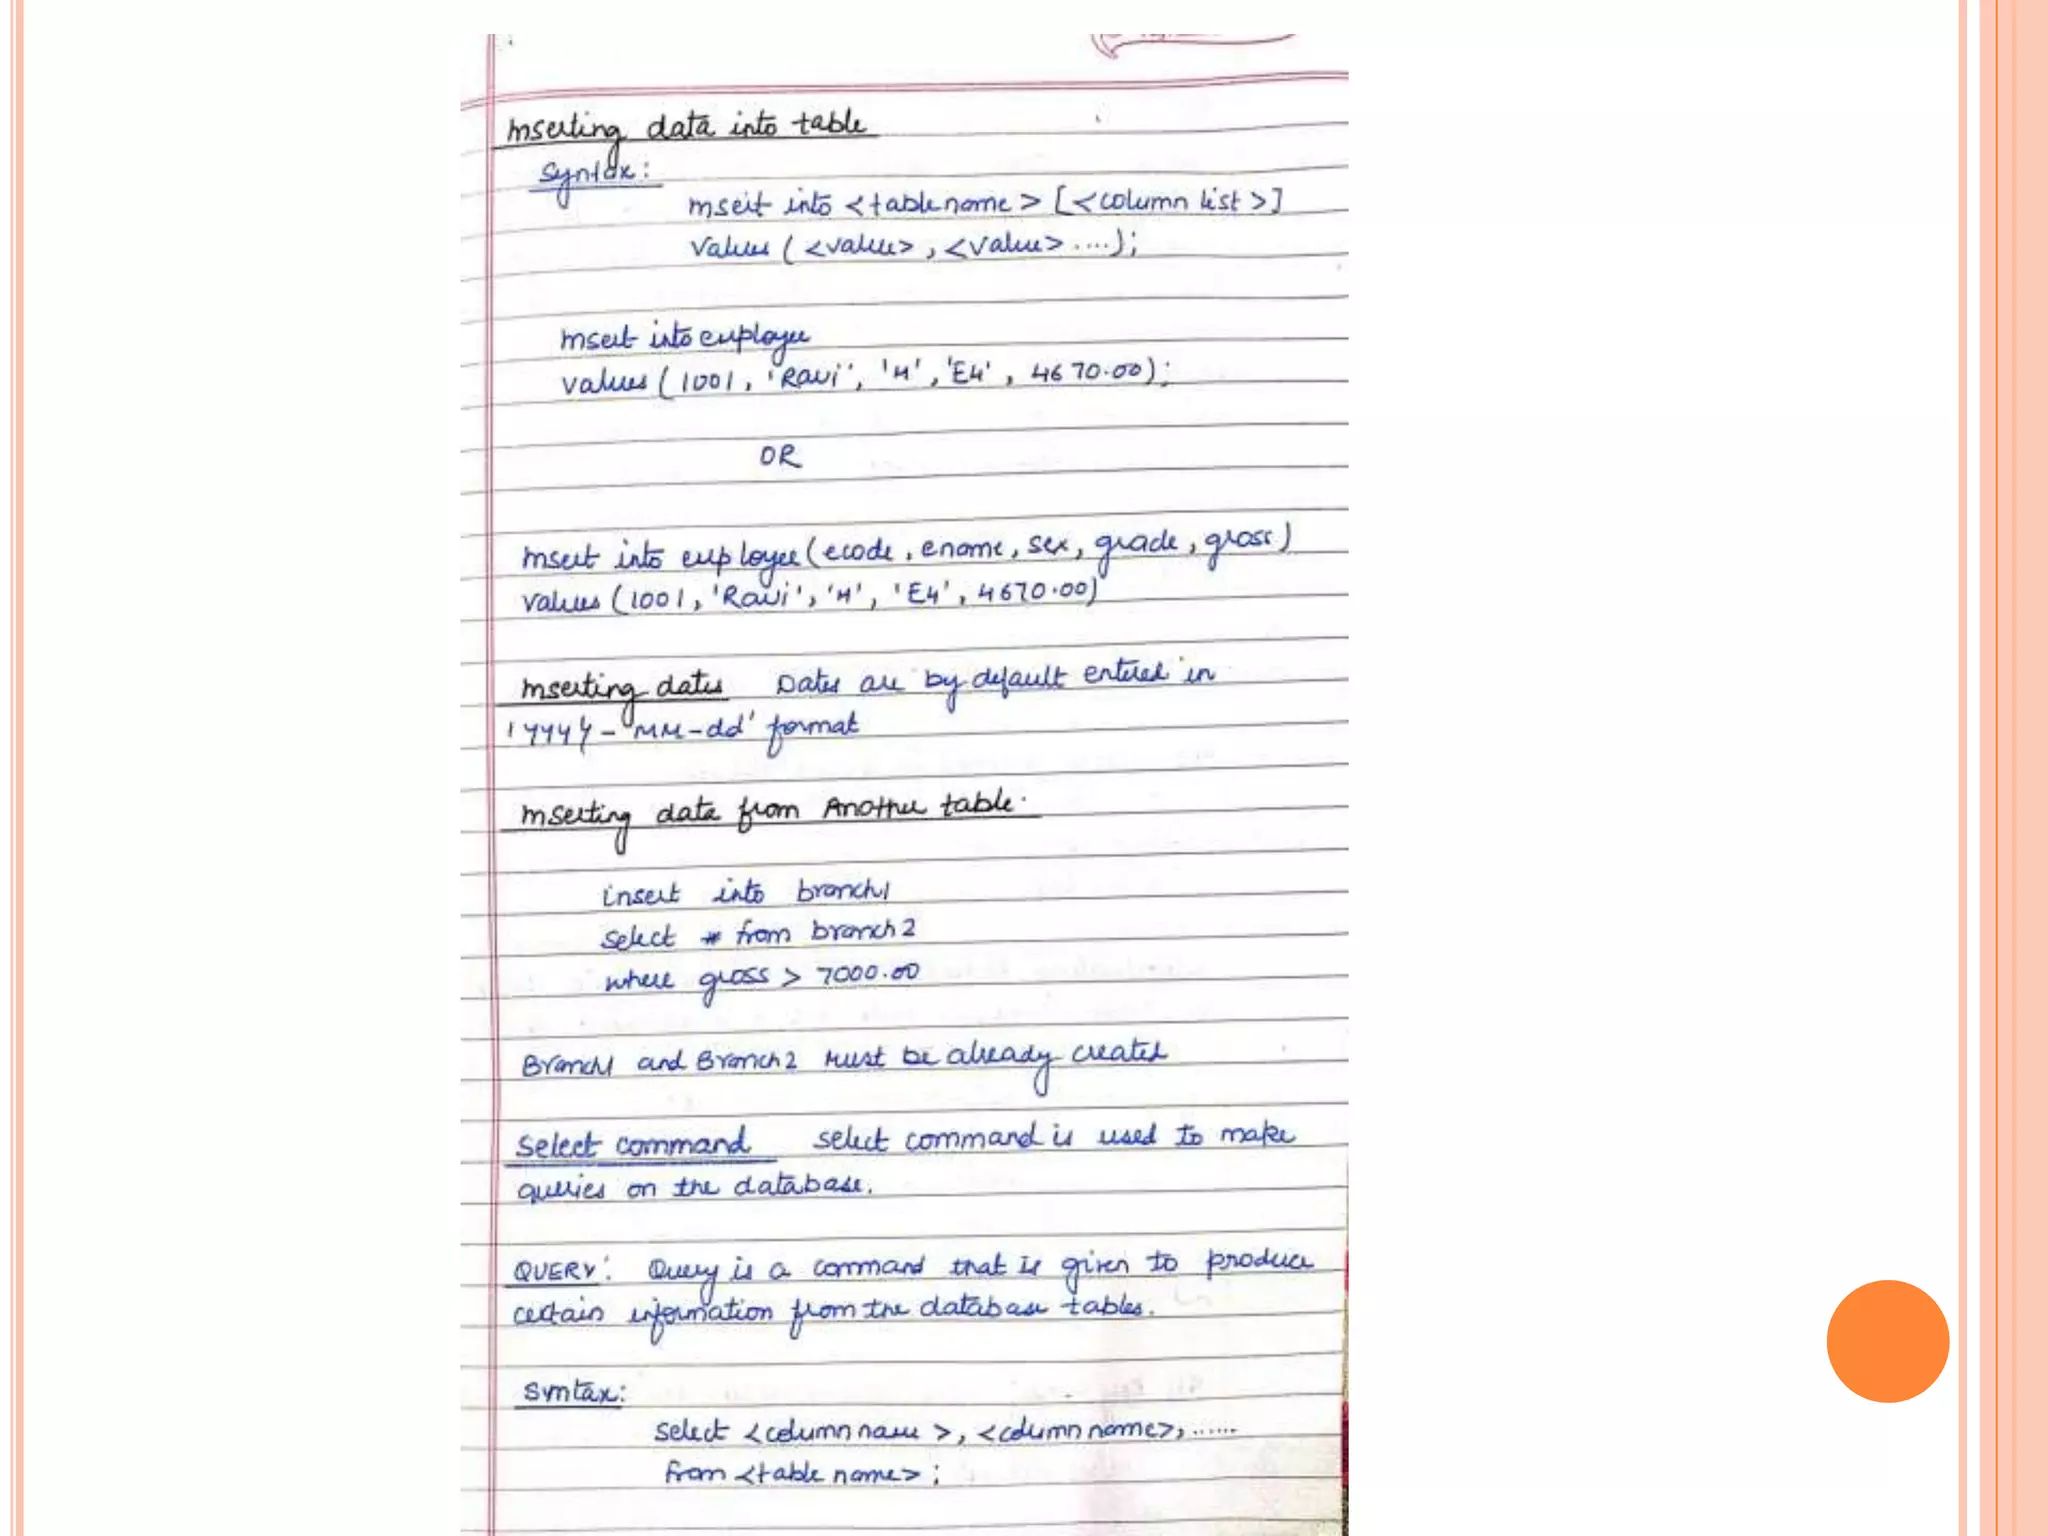 Inserting data into table
Syntax:
Insert into <tablename> [<column list>]
Values ( <value>, <value> ....);
Insert into employee
values (1001, 'Ravi', 'M', 'E4', 4670.00);
OR
Insert into employee (ecode, ename, sex, grade, gross)
values (1001, 'Ravi', 'M', 'E4', 4670.00)
Inserting dates Dates are by default entered in
'YYYY-MM-dd' format
Inserting data from Another table.
insert into branch1
select * from branch2
where gross > 7000.00
Branch1 and Branch2 must be already created
Select command select command is used to make
queries on the database.
QUERY: Query is a command that is given to produce
certain information from the database tables.
Syntax:
Select <column name>, <column name>, ......
from <table name>;